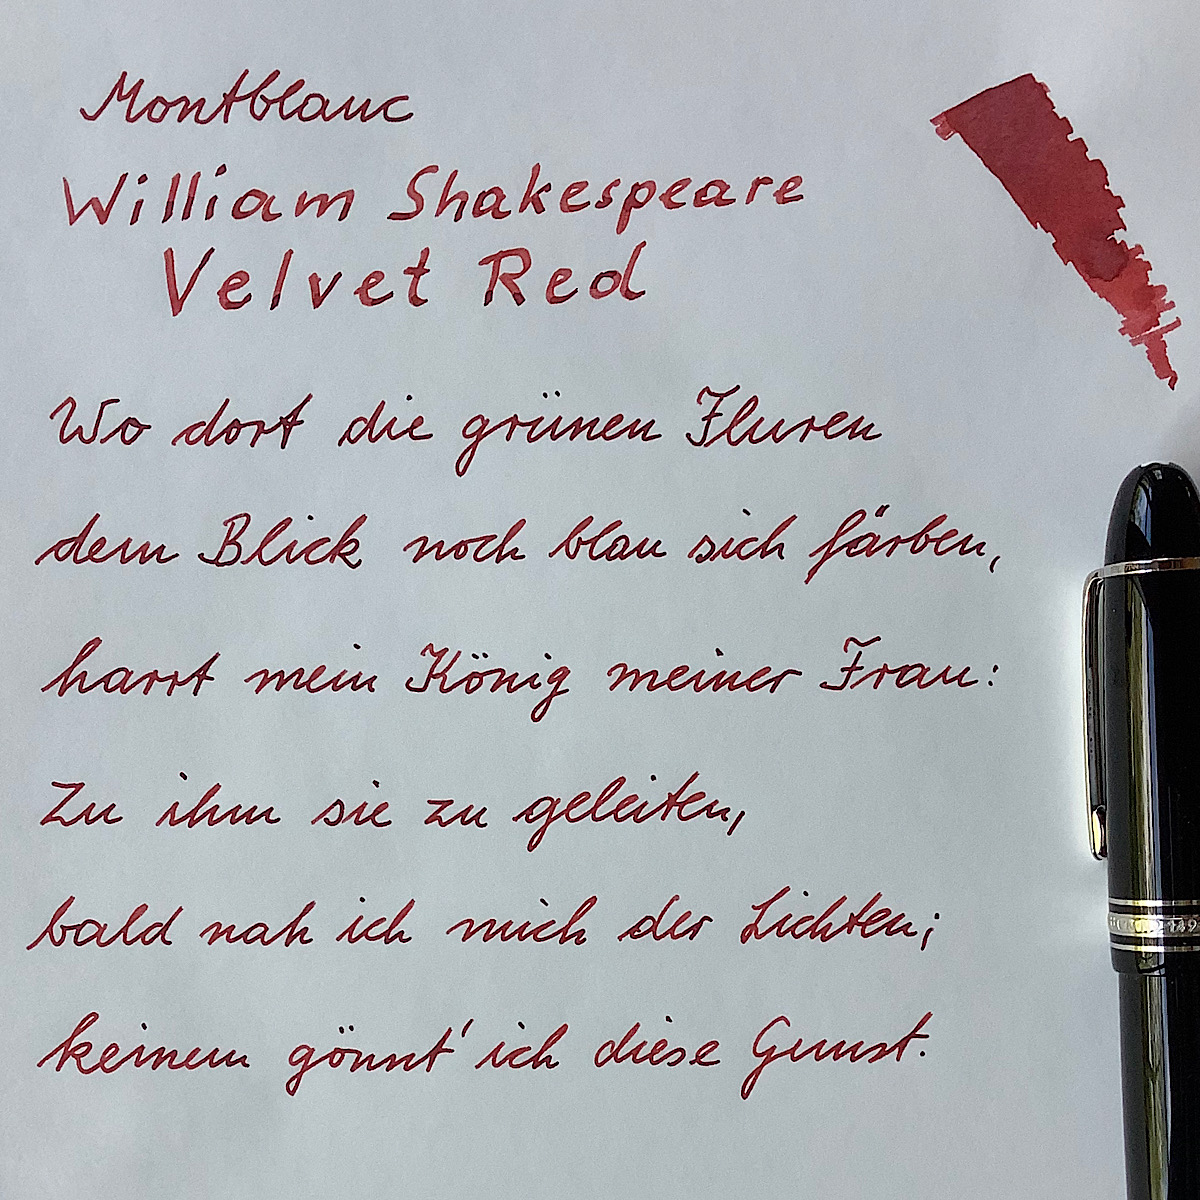 Montblanc
William Shakespeare
Velvet Red
Wo dort die grünen Fluren
dem Blick noch blau sich färben,
harrt mein König meiner Frau:
Zu ihm sie zu geleiten,
bald nah ich mich der Lichten;
keinem gönnt' ich diese Gunst.